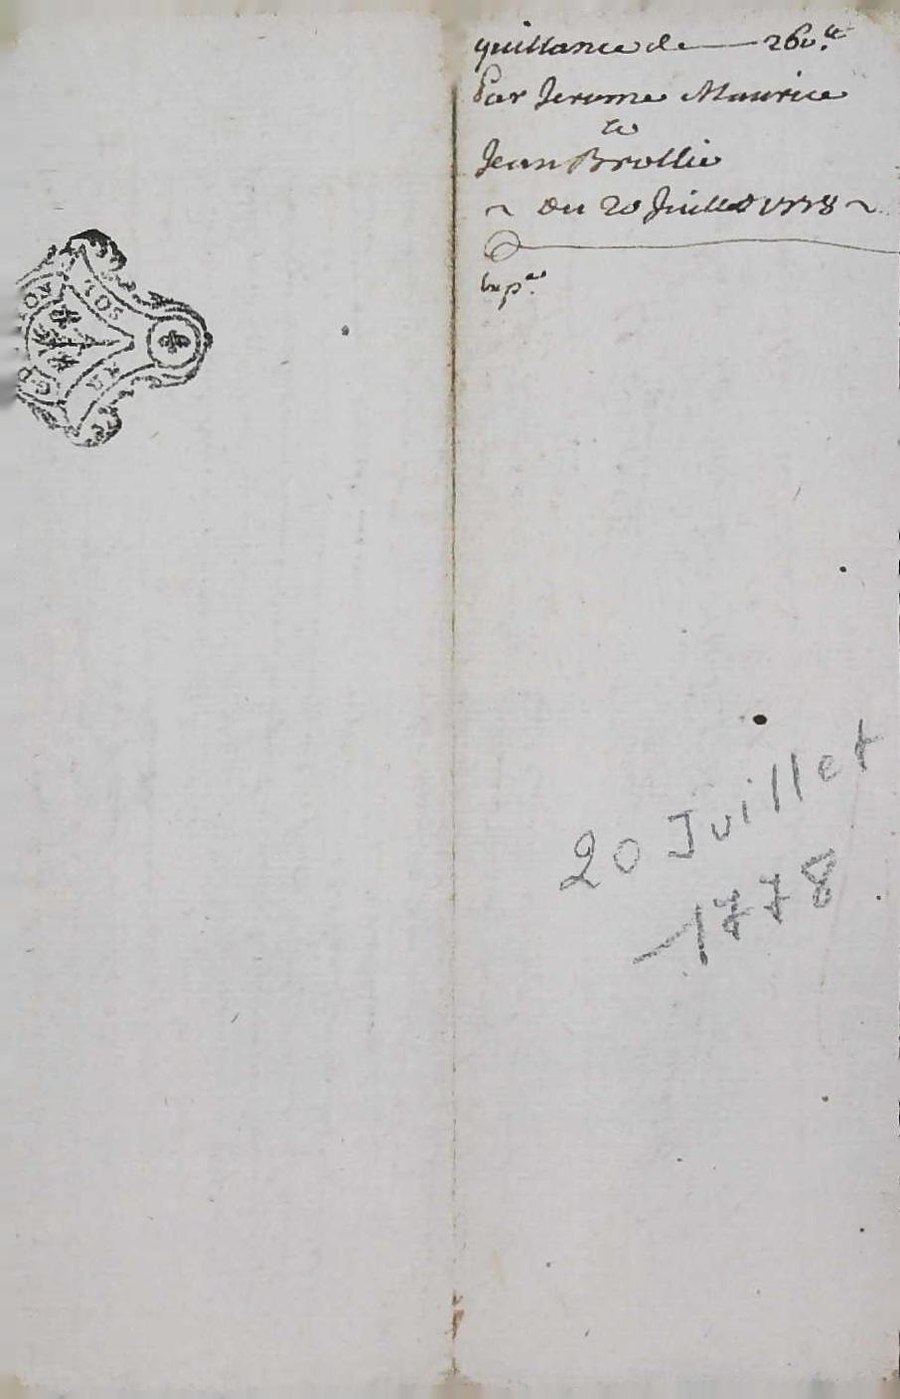 quittance de — 260.tt
Par Jerome Maurice
a
Jean Brottie
~ du 20 Juillet 1778 ~
Exp.on
20 Juillet
1778
SOLS